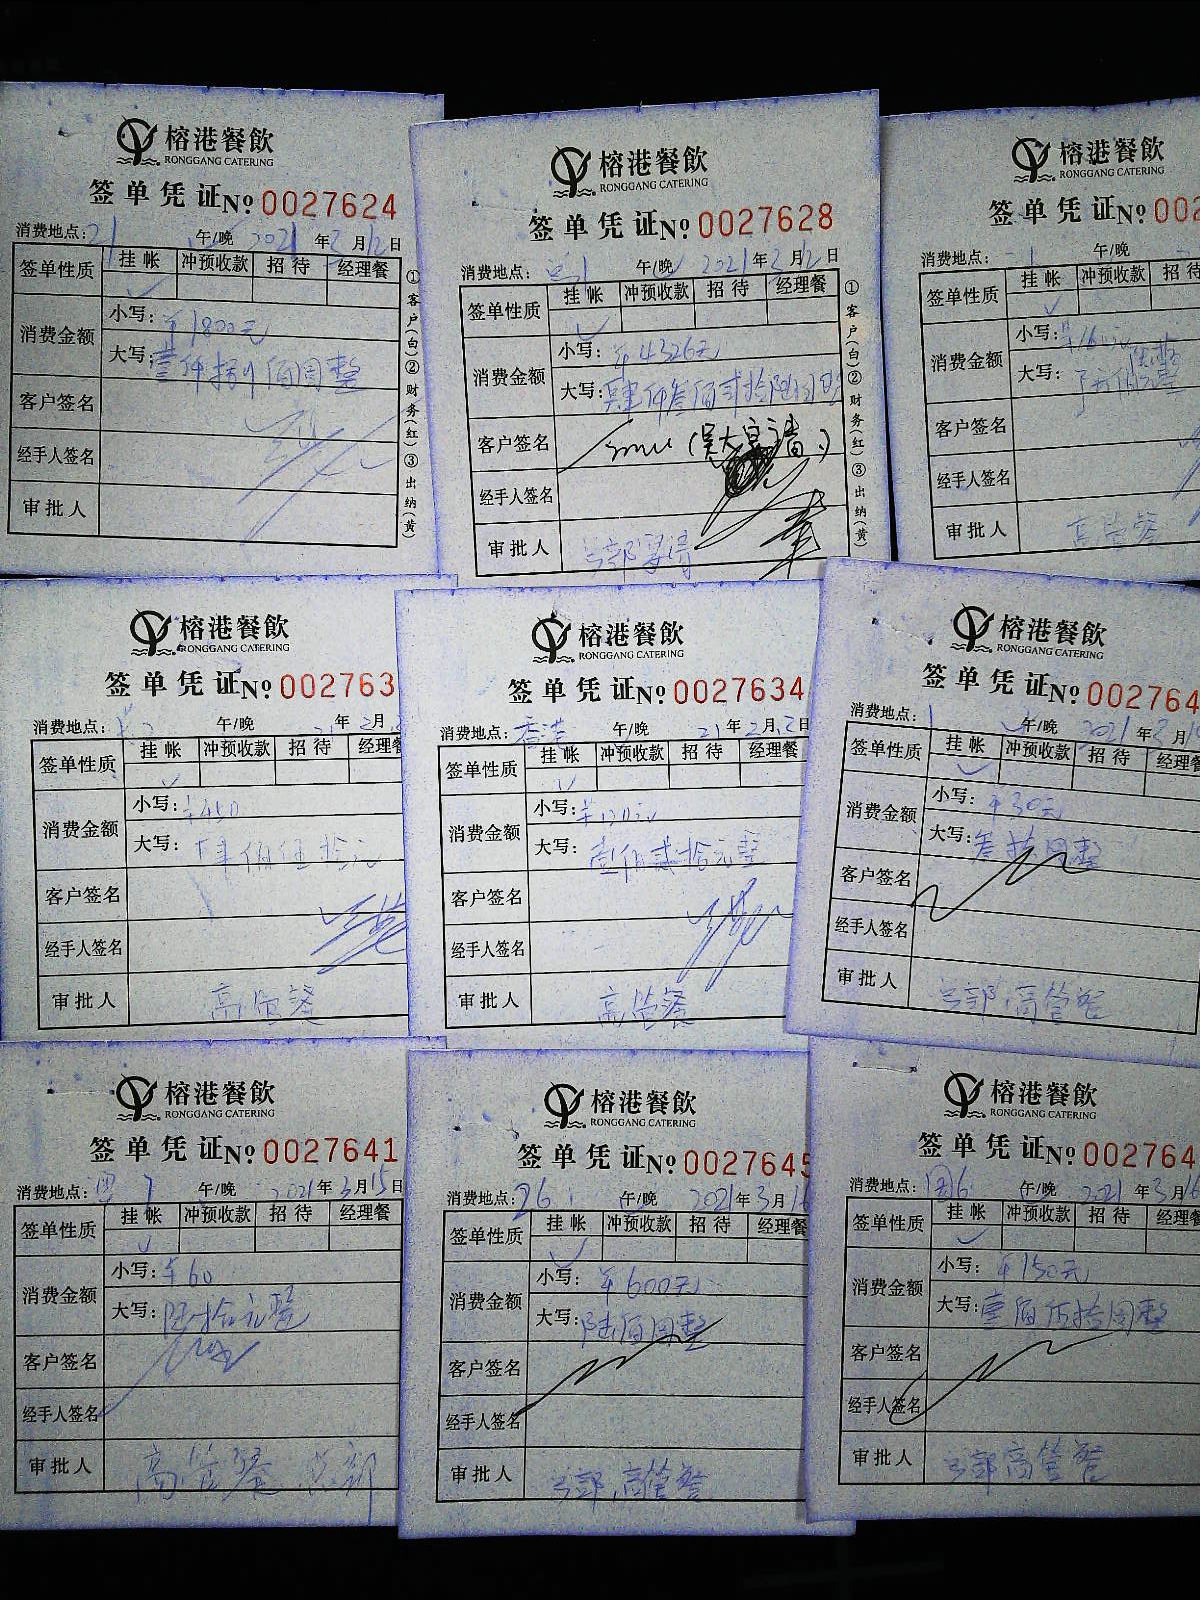 榕港餐飲
RONGGANG CATERING
签单凭证 No 0027624
消费地点: 21 午/晚 2021年2月12日
签单性质 挂帐 冲预收款 招待 经理餐
消费金额 小写: ¥1800元
大写: 壹仟捌佰圆整
客户签名
经手人签名
审批人
①客户(白)②财务(红)③出纳(黄)
榕港餐飲
RONGGANG CATERING
签单凭证 No 0027628
消费地点: 午/晚 2021年2月12日
签单性质 挂帐 冲预收款 招待 经理餐
消费金额 小写: ¥4326元
大写: 肆仟叁佰贰拾陆圆
客户签名
经手人签名
审批人
①客户(白)②财务(红)③出纳(黄)
榕港餐飲
RONGGANG CATERING
签单凭证 No 002
消费地点: 1 午/晚
签单性质 挂帐 冲预收款 招待
消费金额 小写:
大写:
客户签名
经手人签名
审批人 高管餐
榕港餐飲
RONGGANG CATERING
签单凭证 No 002763
消费地点: 午/晚 21年2月
签单性质 挂帐 冲预收款 招待 经理餐
消费金额 小写: ¥450
大写: 肆佰伍拾元
客户签名
经手人签名
审批人 高管餐
榕港餐飲
RONGGANG CATERING
签单凭证 No 0027634
消费地点: 香港 午/晚 21年2月12日
签单性质 挂帐 冲预收款 招待 经理餐
消费金额 小写: ¥120元
大写: 壹佰贰拾元整
客户签名
经手人签名
审批人 高管餐
榕港餐飲
RONGGANG CATERING
签单凭证 No 002764
消费地点: 1 午/晚 2021年2月1
签单性质 挂帐 冲预收款 招待 经理餐
消费金额 小写: ¥30元
大写: 叁拾圆整
客户签名
经手人签名
审批人 总部高管餐
榕港餐飲
RONGGANG CATERING
签单凭证 No 0027641
消费地点: 午/晚 2021年3月15日
签单性质 挂帐 冲预收款 招待 经理餐
消费金额 小写: ¥60
大写: 陆拾元整
客户签名
经手人签名
审批人 高管餐 总部
榕港餐飲
RONGGANG CATERING
签单凭证 No 0027645
消费地点: 26 午/晚 2021年3月16
签单性质 挂帐 冲预收款 招待 经理餐
消费金额 小写: ¥600元
大写: 陆佰圆整
客户签名
经手人签名
审批人 总部高管餐
榕港餐飲
RONGGANG CATERING
签单凭证 No 002764
消费地点: 国6 午/晚 2021年3月16
签单性质 挂帐 冲预收款 招待 经理餐
消费金额 小写: ¥150元
大写: 壹佰伍拾圆整
客户签名
经手人签名
审批人 总部高管餐